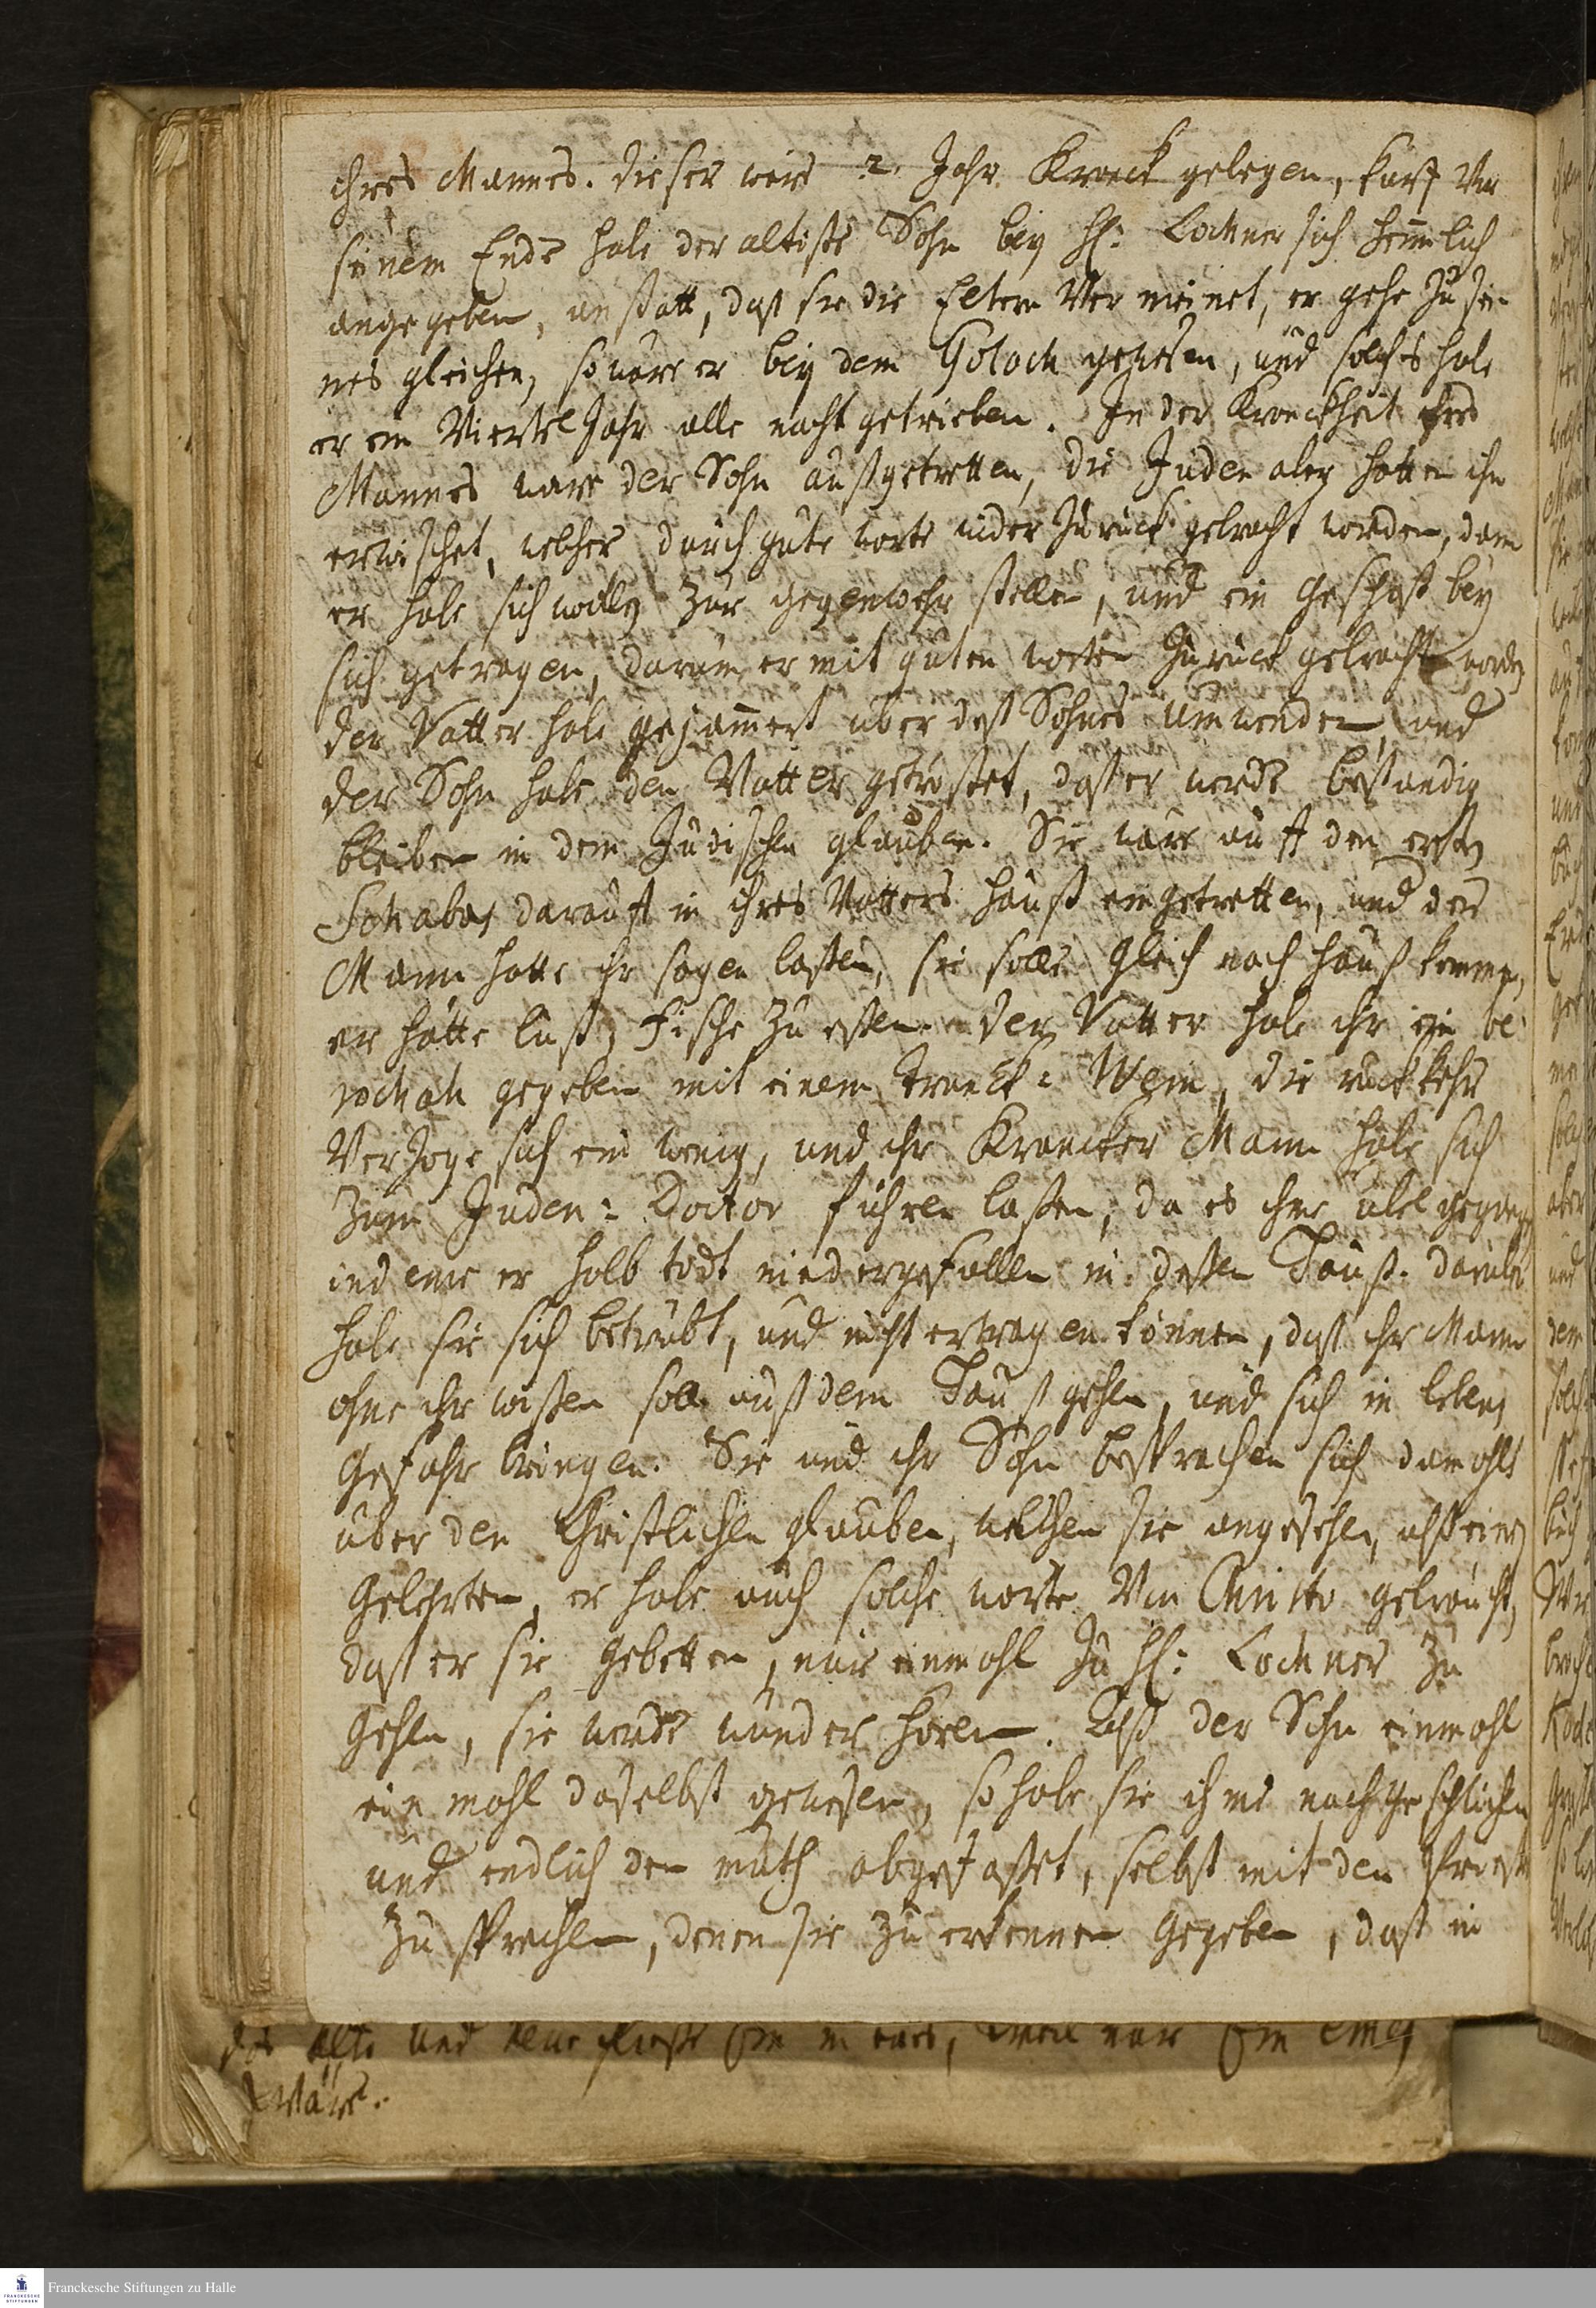 ihres Mannes. dieser wäre 2. Jahr Kranck gelegen, kurtz vor
seinem Ende habe der altiste Sohn bey H: Lochner sich heimlich
angegeben, anstatt, daß sie die Eltern Vermeinet, er gehe zu sei-
nes gleichen, so wäre er bey dem Goloch gewesen, und solches habe
er ein Viertel Jahr alle nacht getrieben. In der Kranckheit ihres
Mannes ware der Sohn außgetretten, die Juden aber hatten ihn
erwischet, welcher durch gute worte wider zurück gebracht worden, dann
er habe sich wollen zur gegenwehr stellen, und ein geschoß bey
sich getragen, darum er mit guten worten zurück gebracht worden
der Vatter habe gejammert über deß Sohnes umwenden, und
der Sohn habe den Vatter getröstet, daß er werde beständig
bleiben in dem Judischen glauben. Sie wäre auff den ersten
Schabas darauff in ihres Vatters Hauß eingetretten, und der
Mann hatte ihr sagen laßen, sie solle gleich nach Hauß kommen,
er hätte lust, Fische zu eßen. der Vatter habe ihr ein be-
rochah gegeben mit einem tranck: Wein, die rückkehr
Verzoge sich ein wenig, und ihr Krancker Mann habe sich
zum Juden: Doctor führen laßen, da es ihme übel gegangen
indeme er halb todt niedergefallen in deßen Hauß. darüber
habe sie sich betrübt, und nicht ertragen können, daß ihr Mann
ohne ihr wißen soll auß dem Hauß gehen, und sich in lebens
Gefahr bringen. Sie und ihr Sohn besprachen sich damahls
über den Christlichen glauben, welchen sie angesehen, alß einen
Gelehrten, er habe auch solche worte Von Christo gebraucht,
daß er sie gebetten, nur einmahl zu H: Lochner zu
gehen, sie werde wunder hören. Alß der Sohn einmahl
ein mahl daselbst gewesen, so habe sie ihme nachgeschlichen
und endlich den muth abgefaßet, selbst mit den
zu sprechen, denen sie zu erkennen gegeben, daß in
das alte und neue
wäre.
Franckesche Stiftungen zu Halle